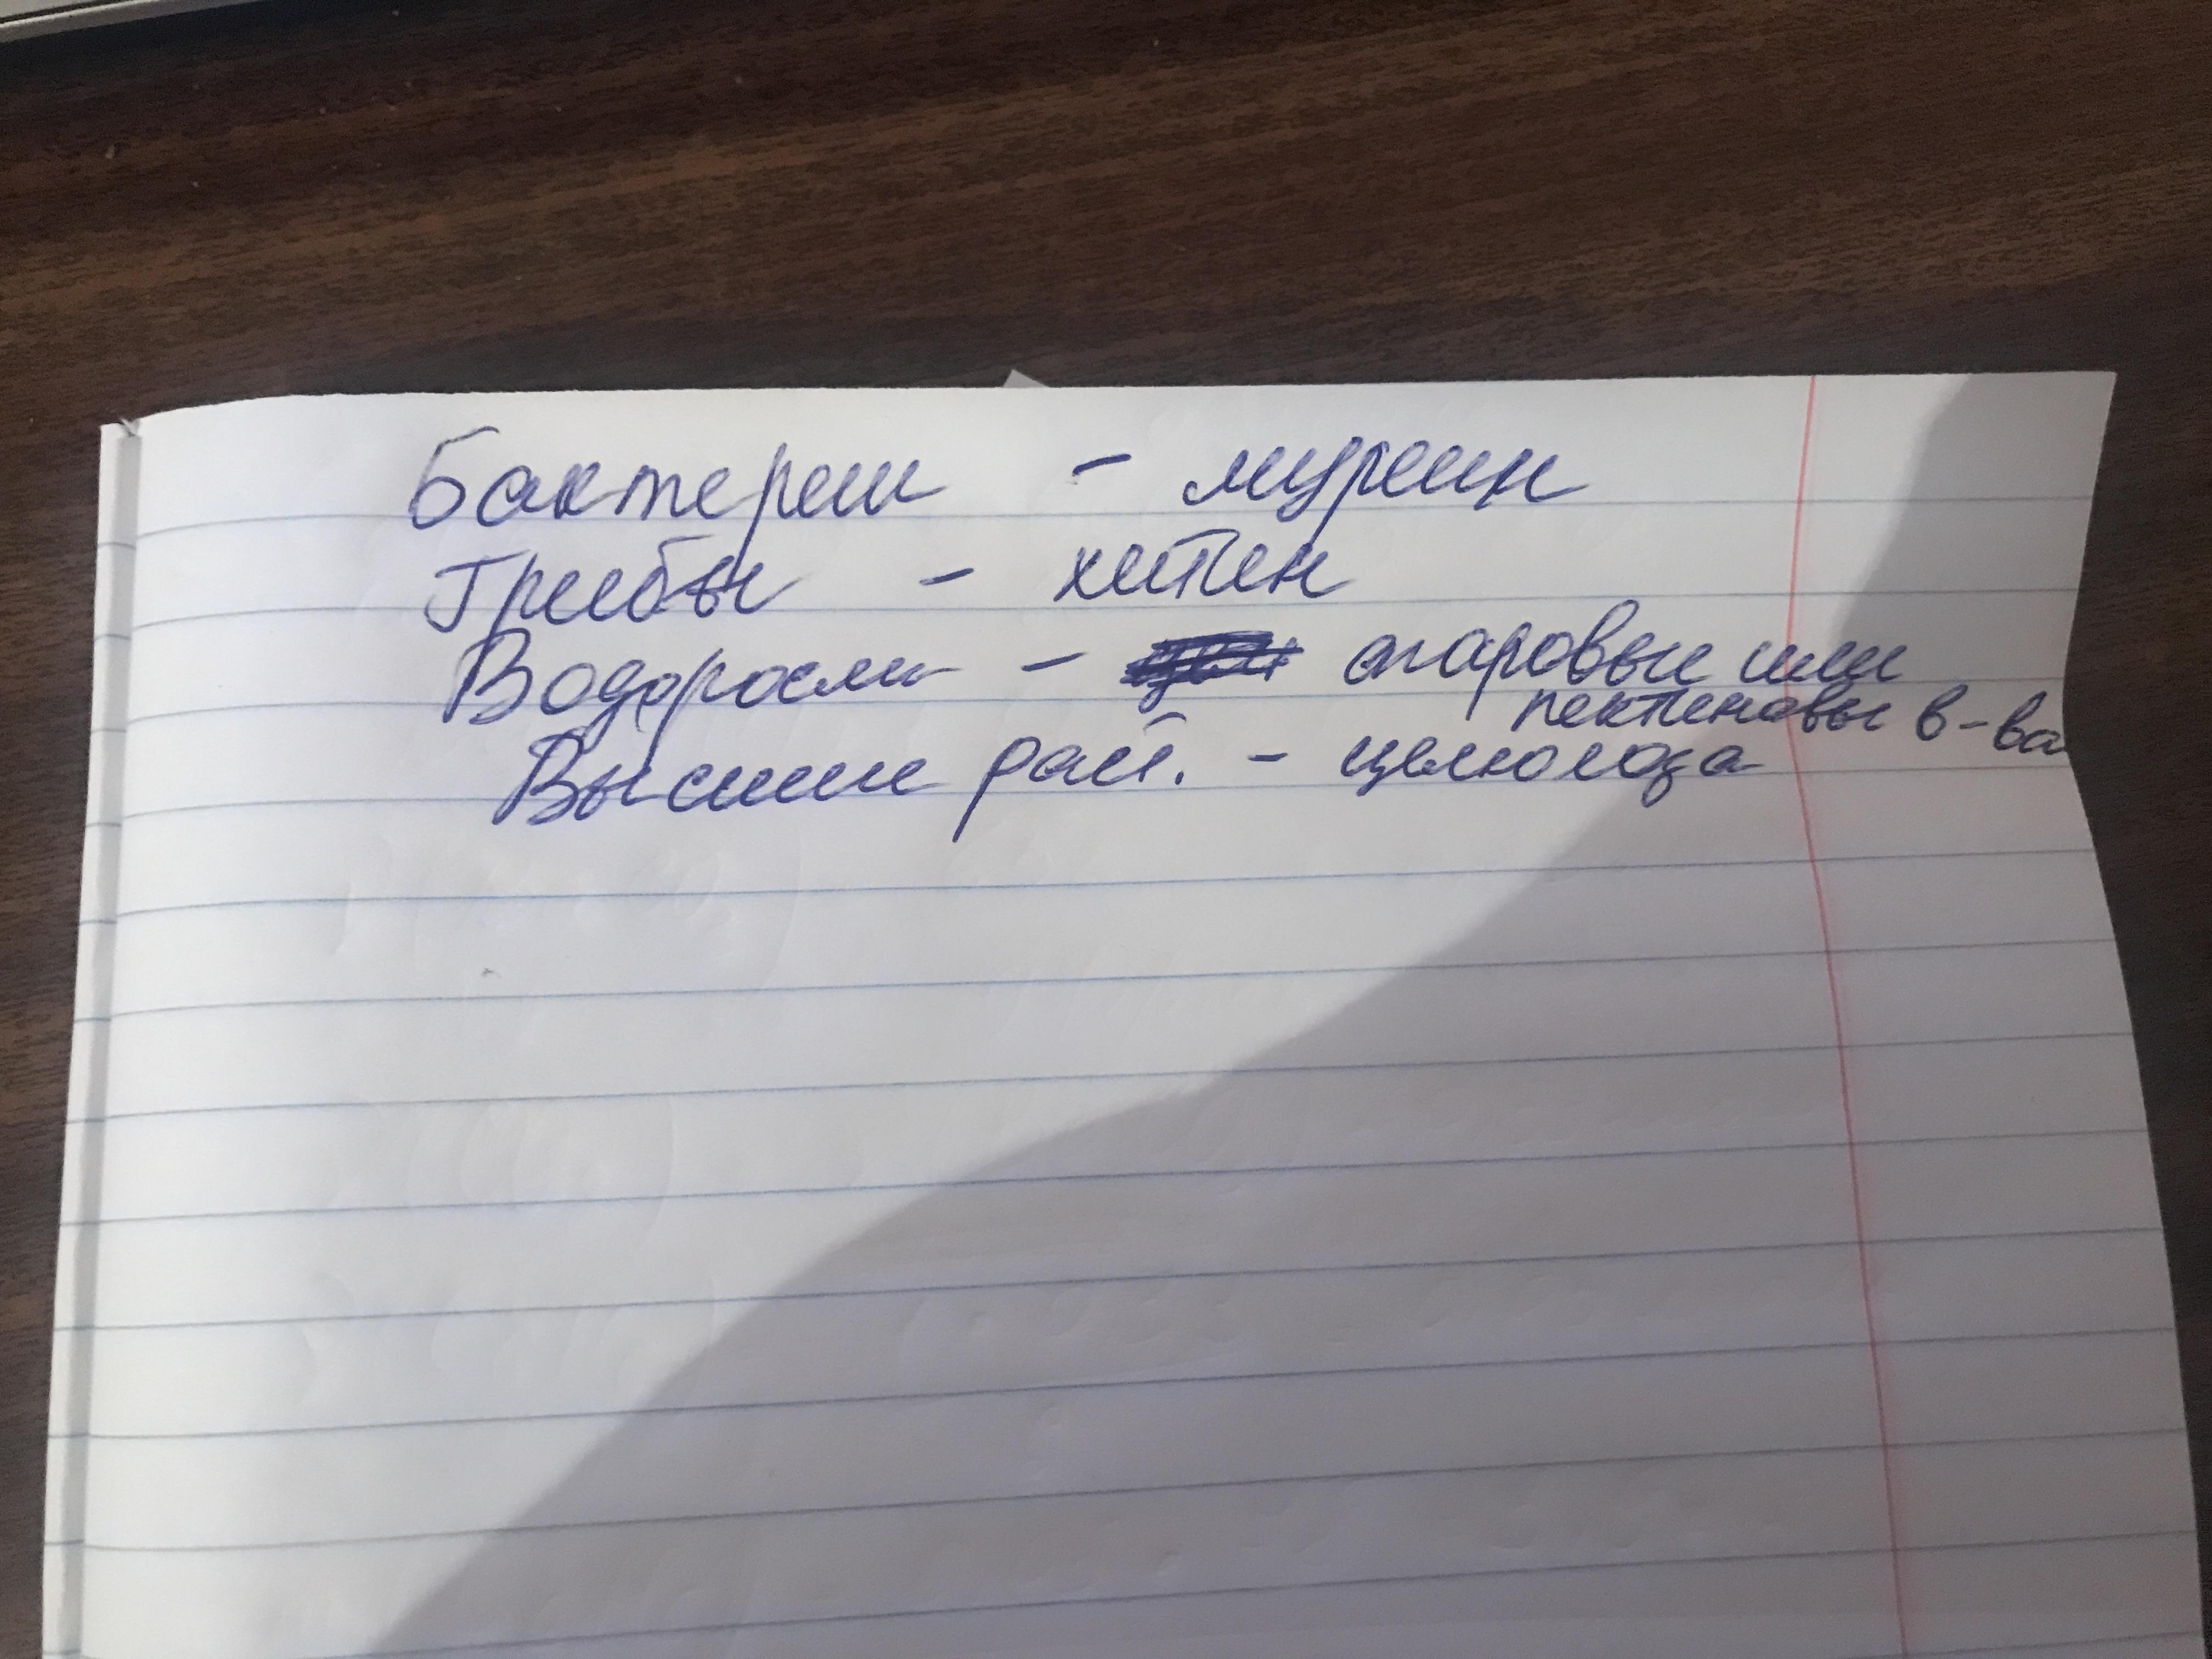 Бактерии - муреин
Грибы - хитин
Водоросли - агаровые или
пектиновые в-ва
Высшие раст. - целюлоза